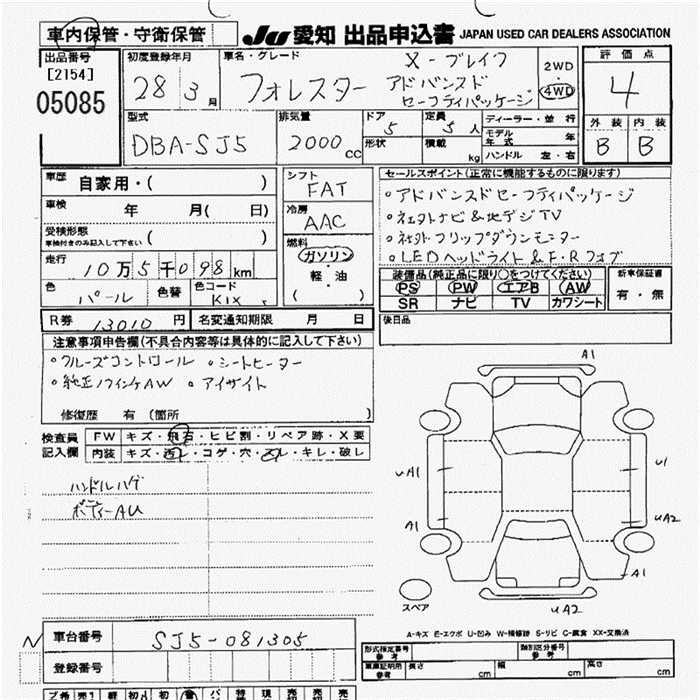 車内保管・守衛保管 JU 愛知 出品申込書 JAPAN USED CAR DEALERS ASSOCIATION
出品番号 [2154] 05085
初度登録年月 28 3月
車名・グレード フォレスター X-ブレイク アドバンスドセーフティパッケージ
2WD・4WD
評価点 4
型式 DBA-SJ5
排気量 2000cc
ドア 5 形状
定員 5人 積載 kg
ディーラー・並行
モデル年式 年
ハンドル 左・右
外装 内装
B B
車歴 自家用・( )
車検 年 月( 日)
受検形態 車検付きのみ記入して下さい ( )
走行 10万5千098km
色 パール 色替 色コード K1X
シフト FAT
冷房 AAC
燃料 ガソリン・軽・油 ( )
セールスポイント(正常に機能するものに限ります)
○アドバンスドセーフティパッケージ
○社外ナビ&地デジTV
○社外フリップダウンモニター
○LEDヘッドライト&F・Rフォグ
装備品(純正品に限り○をつけてください)
PS PW エアB AW
SR ナビ TV カワシート
新車保証書 有・無
R券 13010円 名変通知期限 月 日
後日品
注意事項申告欄(不具合内容等は具体的に記入して下さい)
○クルーズコントロール ○シートヒーター
○純正17インチAW ○アイサイト
修復歴 有 (箇所 )
検査員記入欄
FW キズ・飛石・ヒビ割・リペア跡・X要
内装 キズ・汚レ・コゲ・穴・スレ・キレ・破レ
ハンドルハゲ
ボディーAU
A1
uA1
A1
U1
uA2
A1
uA2
スペア
A-キズ E-エクボ U-凹み W-補修跡 S-サビ C-腐食 XX-交換済
N 車台番号 SJ5-081305
登録番号
形式指定番号 参考
類別区分番号 参考
車庫証明用 参考 長さ cm 幅 cm 高さ cm